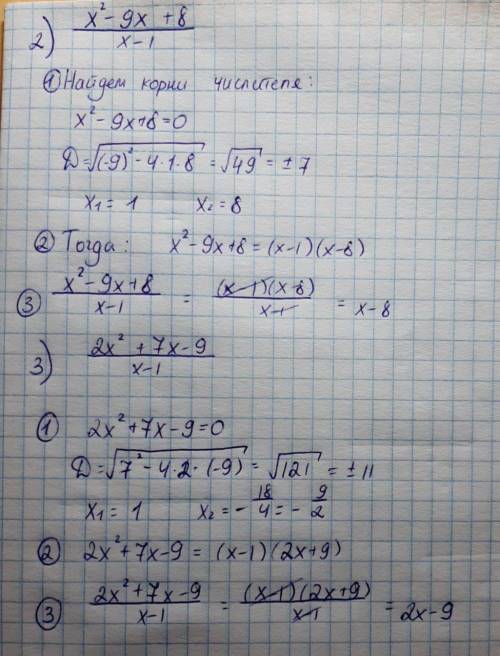 2) (x² - 9x + 8)/(x - 1)
① Найдем корни числителя:
x² - 9x + 8 = 0
D = √((-9)² - 4·1·8) = √49 = ±7
x₁ = 1 x₂ = 8
② Тогда: x² - 9x + 8 = (x-1)(x-8)
③ (x² - 9x + 8)/(x-1) = ((x-1)(x-8))/(x-1) = x-8
3) (2x² + 7x - 9)/(x-1)
① 2x² + 7x - 9 = 0
D = √(7² - 4·2·(-9)) = √121 = ±11
x₁ = 1 x₂ = -18/4 = -9/2
② 2x² + 7x - 9 = (x-1)(2x+9)
③ (2x² + 7x - 9)/(x-1) = ((x-1)(2x+9))/(x-1) = 2x-9